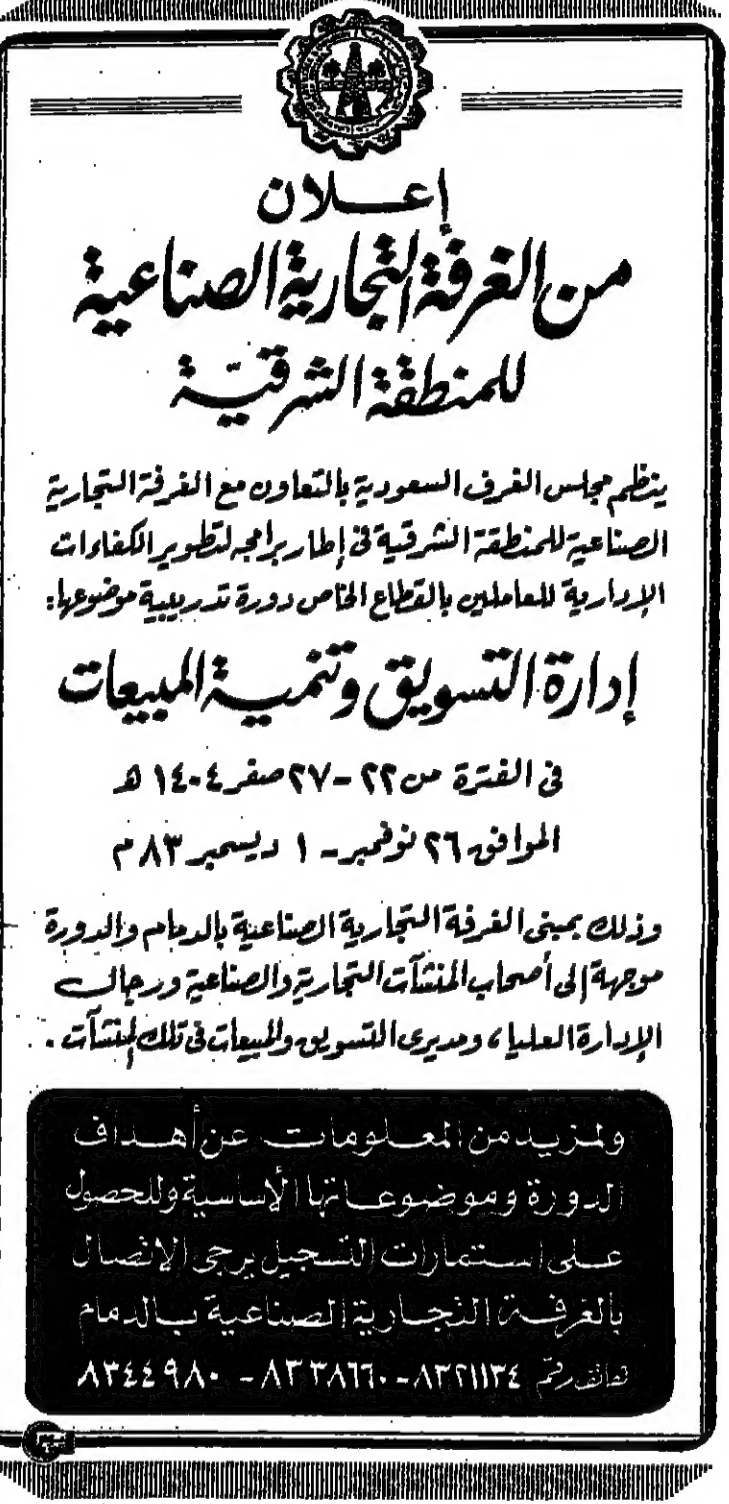 إعلان
من الغرفة التجارية الصناعية
للمنطقة الشرقيّة
ينظم مجلس الغرف السعودية بالتعاون مع الغرفة التجارية
الصناعية للمنطقة الشرقية في إطار برامجه لتطوير الكفاءات
الإدارية للعاملين بالقطاع الخاص دورة تدريبية موضوعها:
إدارة التسويق وتنمية المبيعات
في الفترة من ٢٢ - ٢٧ صفر ١٤٠٤ هـ
الموافق ٢٦ نوفمبر - ١ ديسمبر ٨٣ م
وذلك بمبنى الغرفة التجارية الصناعية بالدمام والدورة
موجهة إلى أصحاب المنشآت التجارية والصناعية ورجال
الإدارة العليا، ومديرى التسويق والمبيعات في تلك المنشآت .
ولمزيد من المعلومات عن أهداف
الدورة وموضوعاتها الأساسية وللحصول
على استمارات التسجيل يرجى الاتصال
بالغرفة التجارية الصناعية بالدمام
هاتف رقم ٨٣٢١١٣٤ - ٨٣٣٨٦٦٠ - ٨٣٤٤٩٨٠